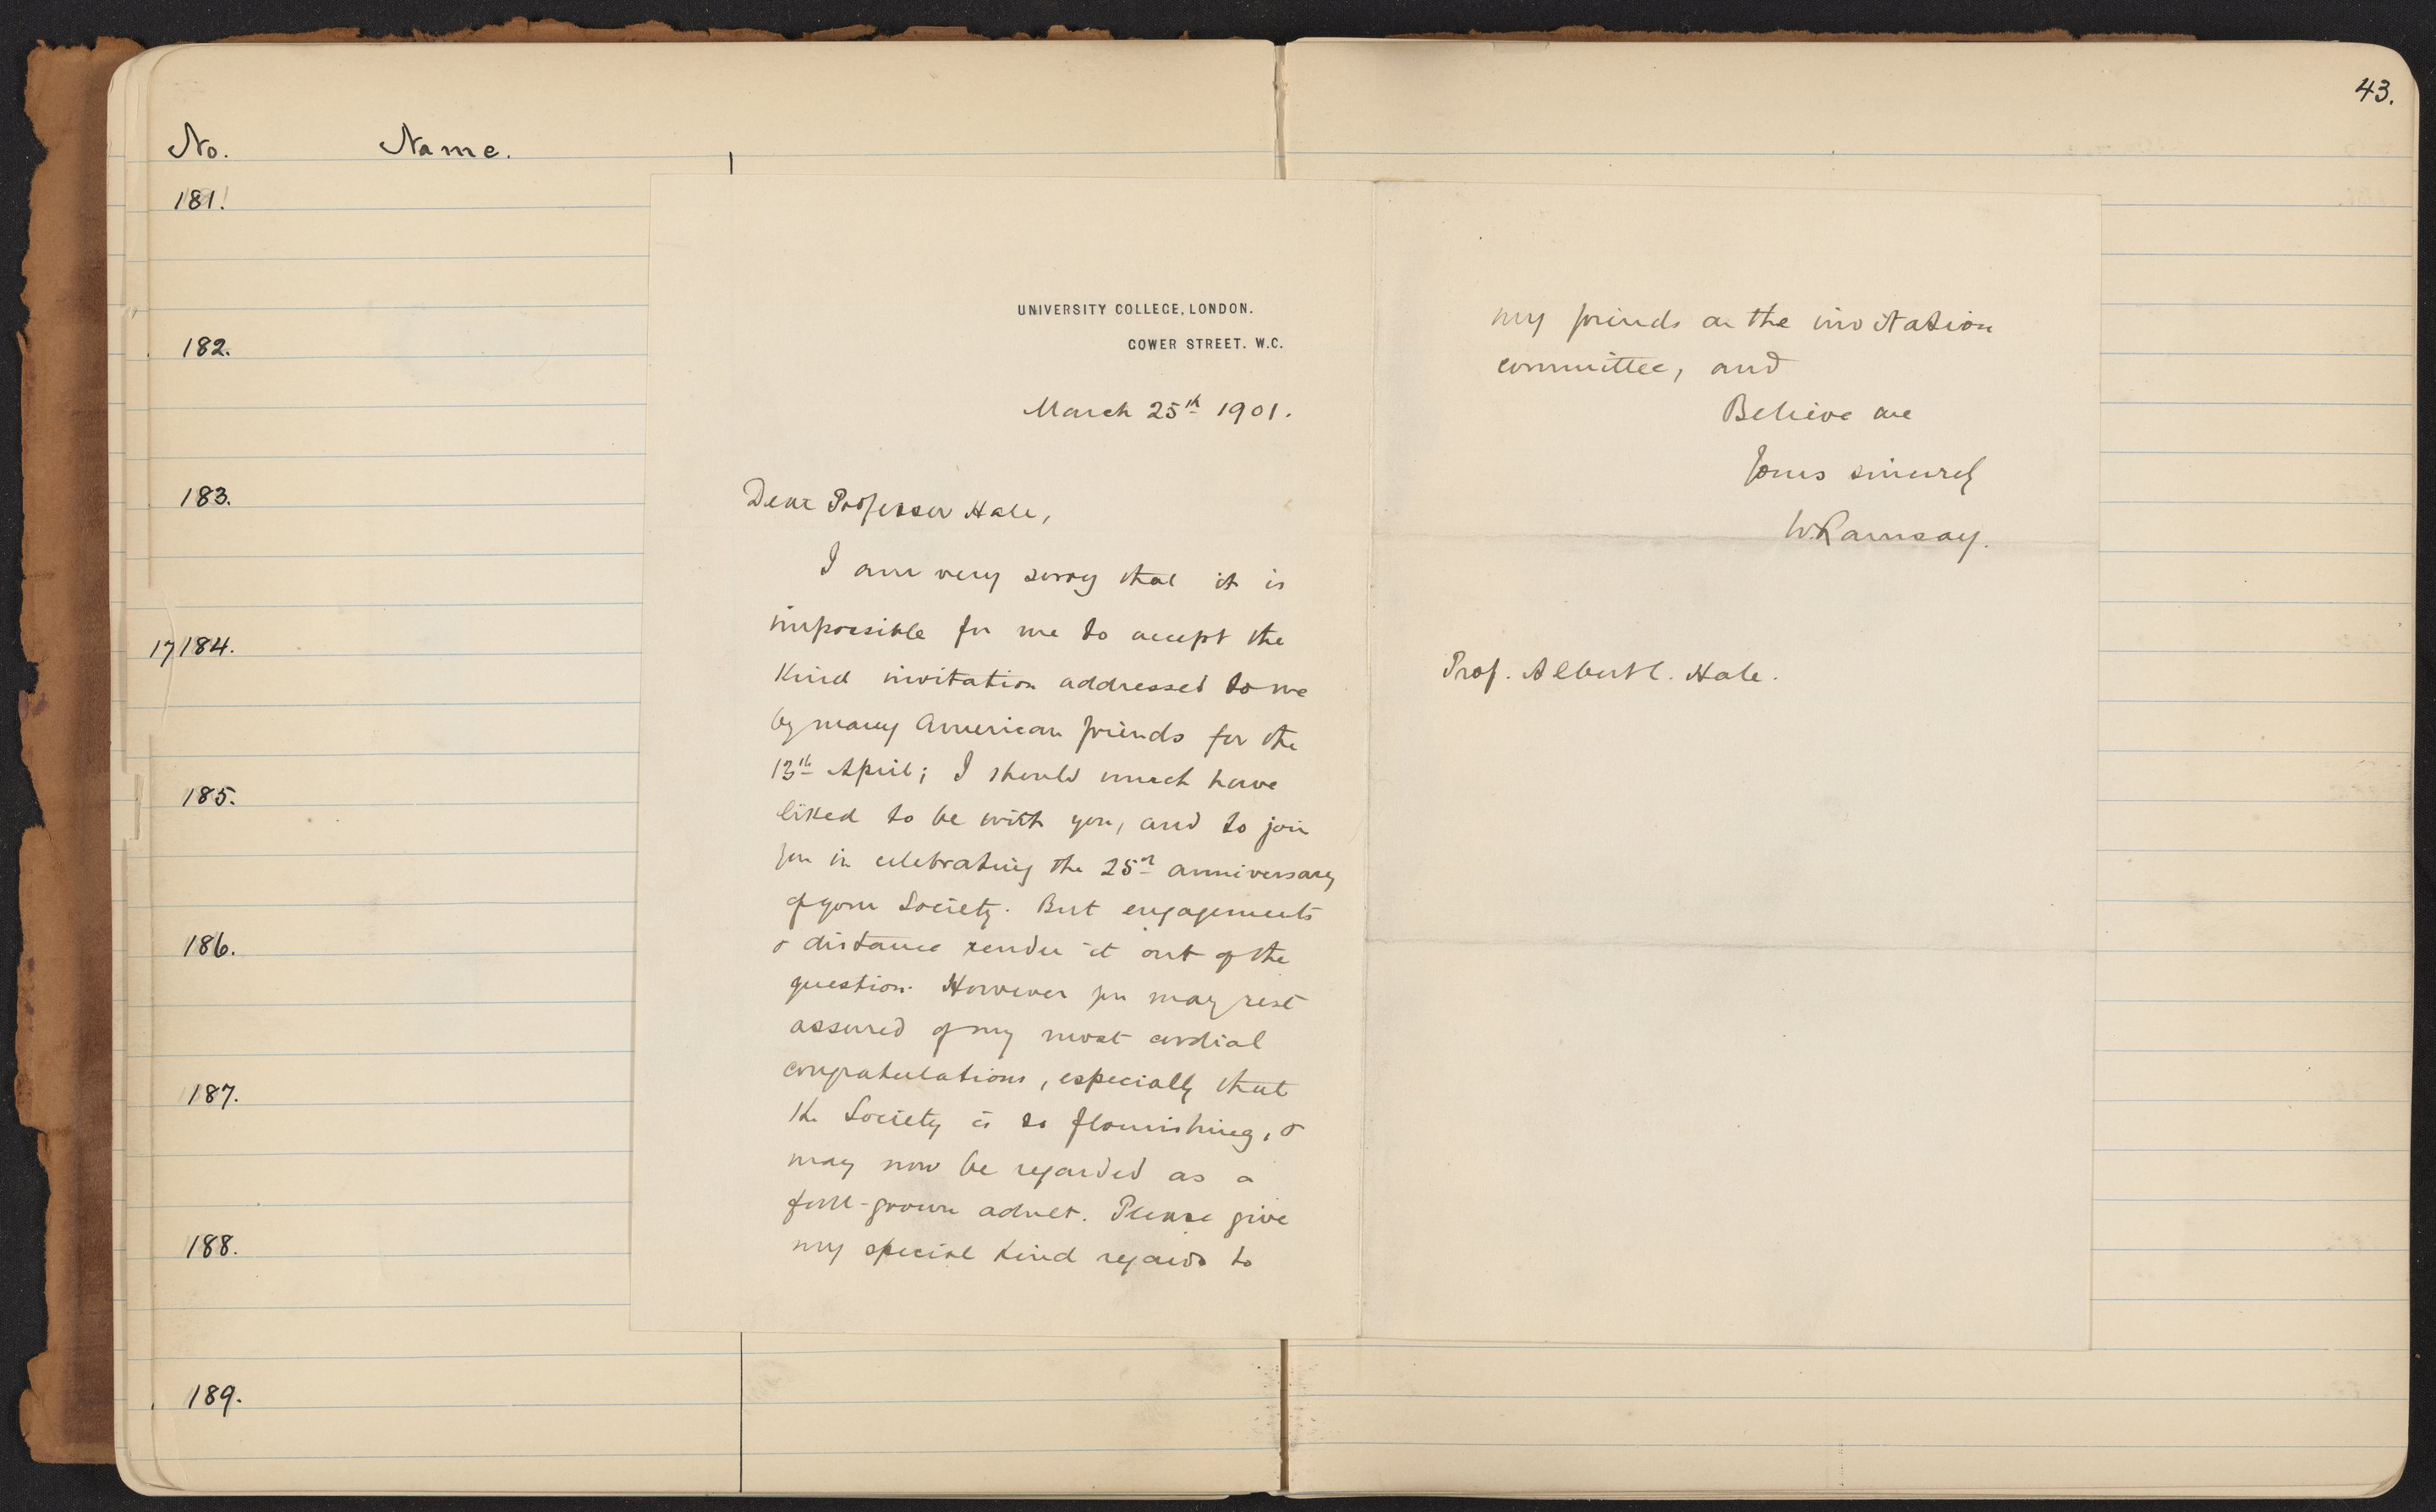 43.
No. Name.
181.
182.
183.
17 184.
185.
186.
187.
188.
189.
UNIVERSITY COLLEGE, LONDON.
GOWER STREET. W.C.
March 25th 1901.
Dear Professor Hale,
I am very sorry that it is
impossible for me to accept the
kind invitation addressed to me
by many American friends for the
13th April; I should much have
liked to be with you, and to join
you in celebrating the 25th anniversary
of your Society. But engagements
& distance render it out of the
question. However you may rest
assured of my most cordial
congratulations, especially that
the Society is so flourishing, &
may now be regarded as a
full-grown adult. Please give
my special kind regards to
my friends on the invitation
committee, and
Believe me
Yours sincerely
W. Ramsay.
Prof. Albert C. Hale.